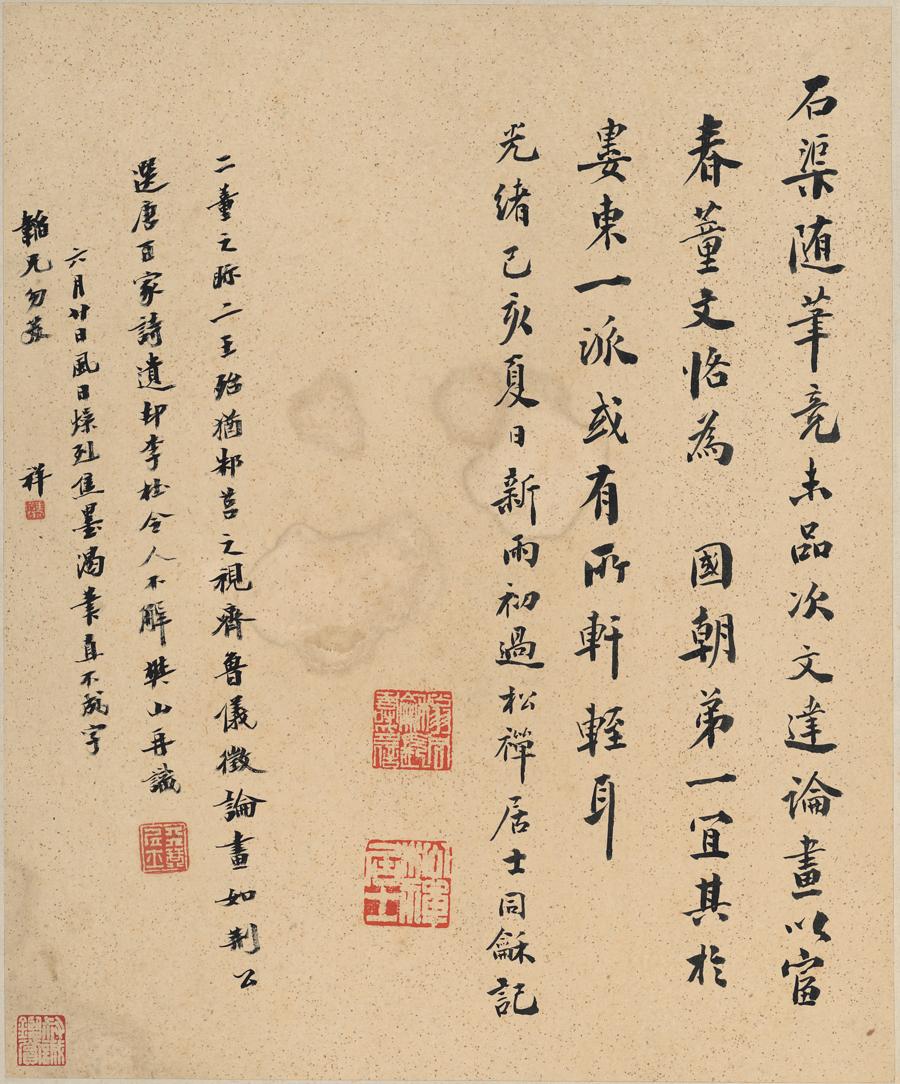 石渠随筆竟未品次文達論畫以富
春董文恪為 國朝弟一宜其於
婁東一派或有所軒輊耳
光緒己亥夏日新雨初過松禪居士同龢記
翁同龢觀
松禪居士
二董之眎二王殆猶邾莒之視齊魯儀徵論畫如荆公
選唐百家詩遺却李杜令人不解樊山再識
六月廿日風日燥烈焦墨渴筆真不成字
韜兄勿笑 祥